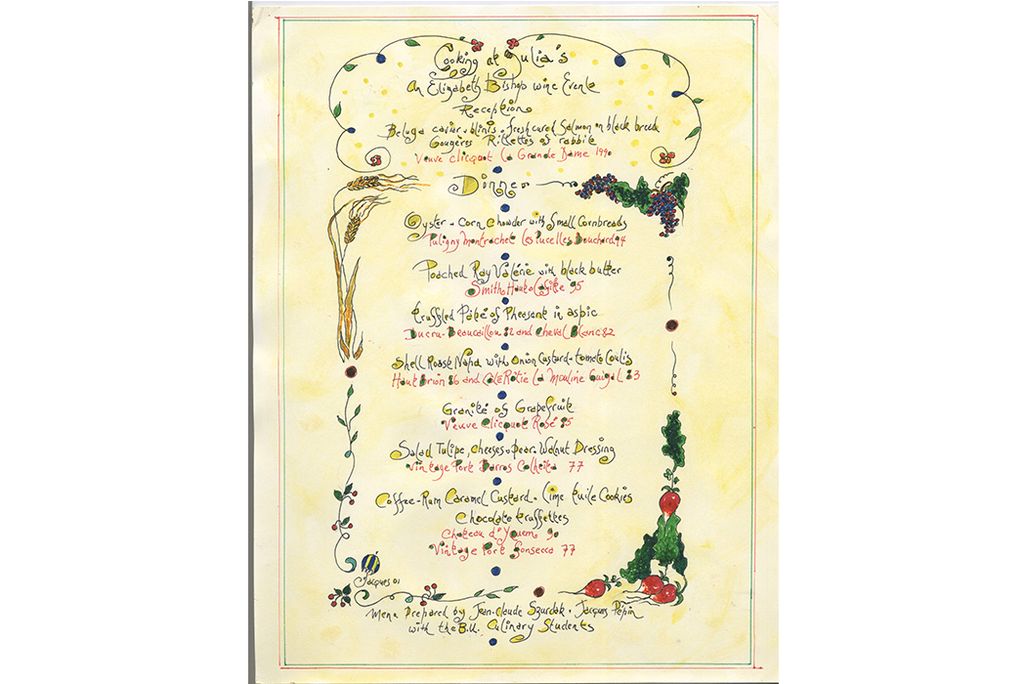 Cooking at Julia's
An Elizabeth Bishop wine Event
Reception
Beluga caviar + blinis - fresh cured Salmon on black bread
Gougères Rillettes of rabbit
Veuve Clicquot La Grande Dame 1990
Dinner
Oyster - Corn Chowder with Small Cornbreads
Puligny Montrachet les Pucelles Bouchard 94
Poached Ray Valérie with black butter
Smith Haut Lafitte 95
truffled Pâté of Pheasant in aspic
Ducru-Beaucaillou 82 and Cheval Blanc 82
Shell Roast Napa with Onion Custard - tomato Coulis
Haut Brion 86 and Côte Rôtie La Mouline Guigal 83
Granité of Grapefruit
Veuve Clicquot Rosé 85
Salad Tulipe, cheeses + pear - Walnut Dressing
Vintage Port Barros Colheita 77
Coffee-Rum Caramel Custard - Lime tuile Cookies
Chocolate truffettes
Chateau d'Yquem 90
Vintage Port Fonseca 77
Jacques 01
Menu Prepared by Jean-Claude Szurdak - Jacques Pépin
with the B.U. Culinary Students